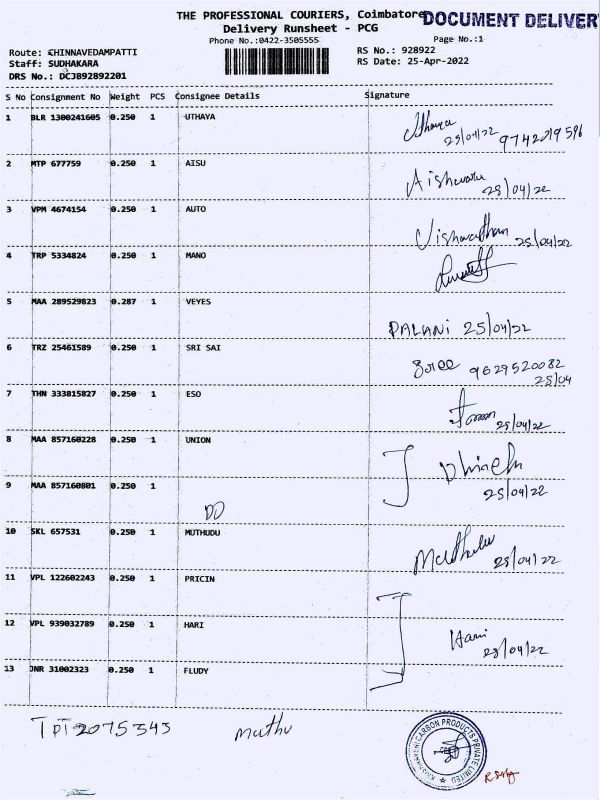 THE PROFESSIONAL COURIERS, Coimbatore
DOCUMENT DELIVER
Delivery Runsheet - PCG
Phone No.:0422-3505555
Page No.:1
Route: CHINNAVEDAMPATTI
RS No.: 928922
Staff: SUDHAKARA
RS Date: 25-Apr-2022
DRS No.: DCJB92892201
S No Consignment No Weight PCS Consignee Details Signature
1 BLR 1300241605 0.250 1 UTHAYA
25/04/22 9742019596
2 MTP 677759 0.250 1 AISU
25/04/22
3 VPM 4674154 0.250 1 AUTO
25/04/22
4 TRP 5334824 0.250 1 MANO
5 MAA 289529823 0.287 1 VEYES
PALANI 25/04/22
6 TRZ 25461589 0.250 1 SRI SAI
Sree 9629520082
25/04
7 THN 333815827 0.250 1 ESO
25/04/22
8 MAA 857160228 0.250 1 UNION
25/04/22
9 MAA 857160801 0.250 1
DO
10 SKL 657531 0.250 1 MUTHUDU
25/04/22
11 VPL 122602243 0.250 1 PRICIN
12 VPL 939032789 0.250 1 HARI
Hari
25/04/22
13 JNR 31002323 0.250 1 FLUDY
TPT 2075343 Muthu
CARBON PRODUCTS PRIVATE LIMITED